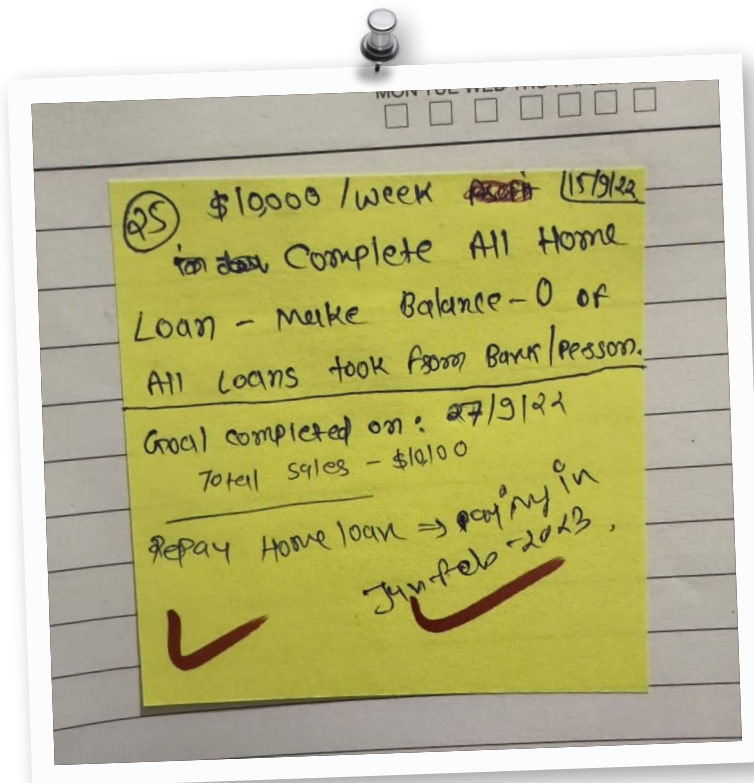 25 $10,000 /week 15/9/22
Complete All Home
Loan - Make Balance - 0 of
All Loans took from Bank/Person.
Goal completed on: 27/9/22
Total sales - $10,100
Repay Home loan ⇒ paying in
Jan-Feb-2023.